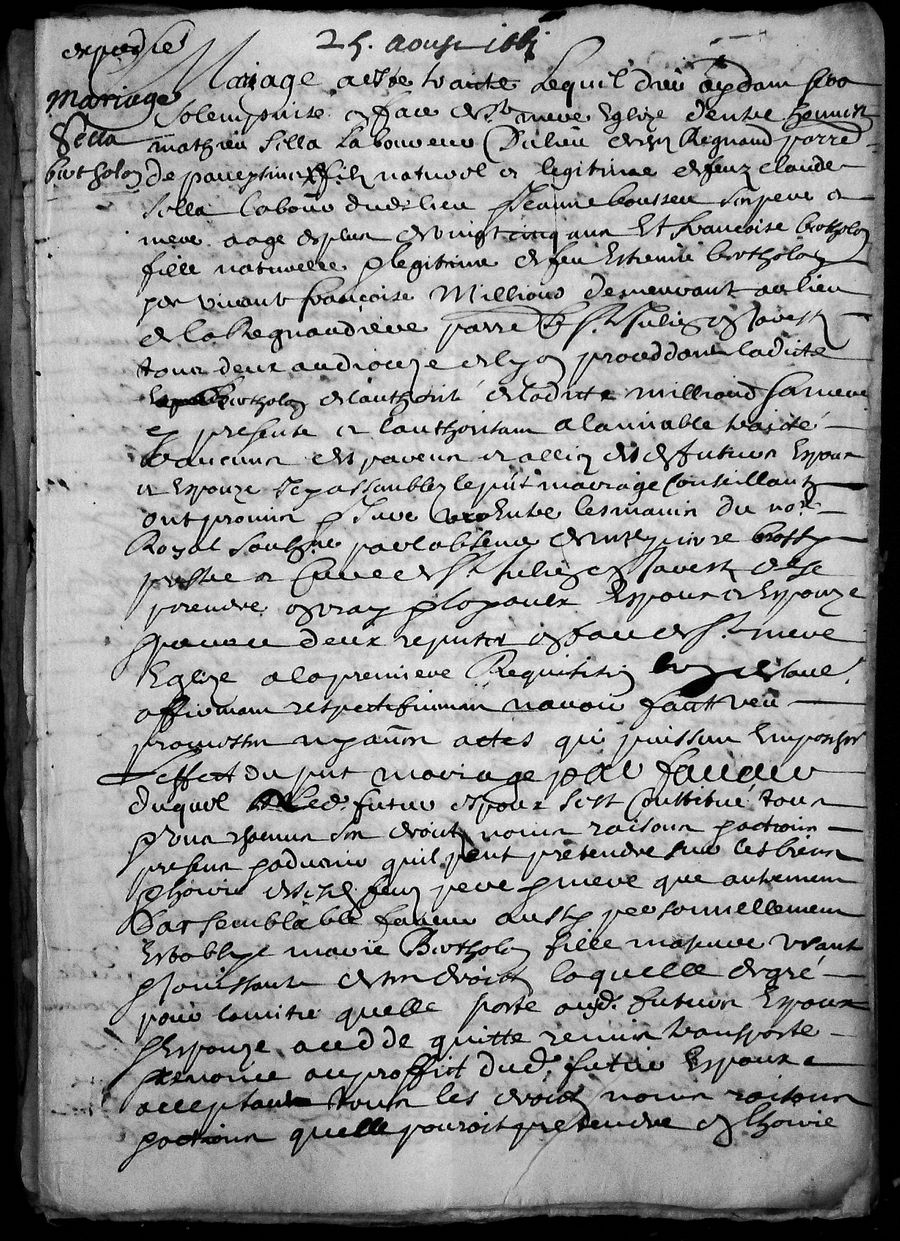 expedié
25. aoust
mariage
Sella
bertholon
Mariage a este traicte Lequel dieu aydant sera
Solempnise en face de ste mere Eglize d'entre honneste
mathieu Silla Laboureur du lieu de Regnaud parre
de filz naturel et legitime de feuz claude
Silla labour dudit lieu et Jeanne bousseu ses pere et
mere aage de plus de vingt cinq ans Et françoise bertholon
fille naturelle et legitime de feu Estienne bertholon
et de vivant françoise Milliand demeurant au lieu
de la Regnaudiere parre de St Julien
tous deux au dioceze de lyon proceddant ladicte
bertholon de l'authorité de ladicte milliand sa mere
cy presente et l'authorisant a l'amiable traicté
d'aucuns des parens et alliez desd futurs Espoux
et Espouze Icy assemblez le pnt mariage Conseillant
ont promis et Juré Entre les mains du nore
Royal soubzne par l'absence de mre
prestre et Curé de St Julien de se
prendre en vray et loyaux Espoux et Espouze
en face de ste mere
Eglize a la premiere Requisition
affirmant respectivement n'avoir faict
promesses ny aucuns actes qui puissent Empescher
l'effect du pnt mariage par faveur
duquel Led. futur espoux s'est Constitué tous
et ungs chacuns ses droictz noms raisons et actions
presens et advenir qu'il peut pretendre sur les biens
et hoirie de sesd. feuz pere et mere que autrement
Par semblable faveur aussy personnellement
Establye marie Bertholon fille majeure usant
et Jouissante de ses droictz laquelle de gré
pour l'amitié quelle porte ausd. futurs Espoux
et Espouze a cedde quitte remis transporte
et renonce au proffict dud. futur Espoux
acceptant tous les droictz noms raisons
et actions quelle pouroit pretendre en l'hoirie